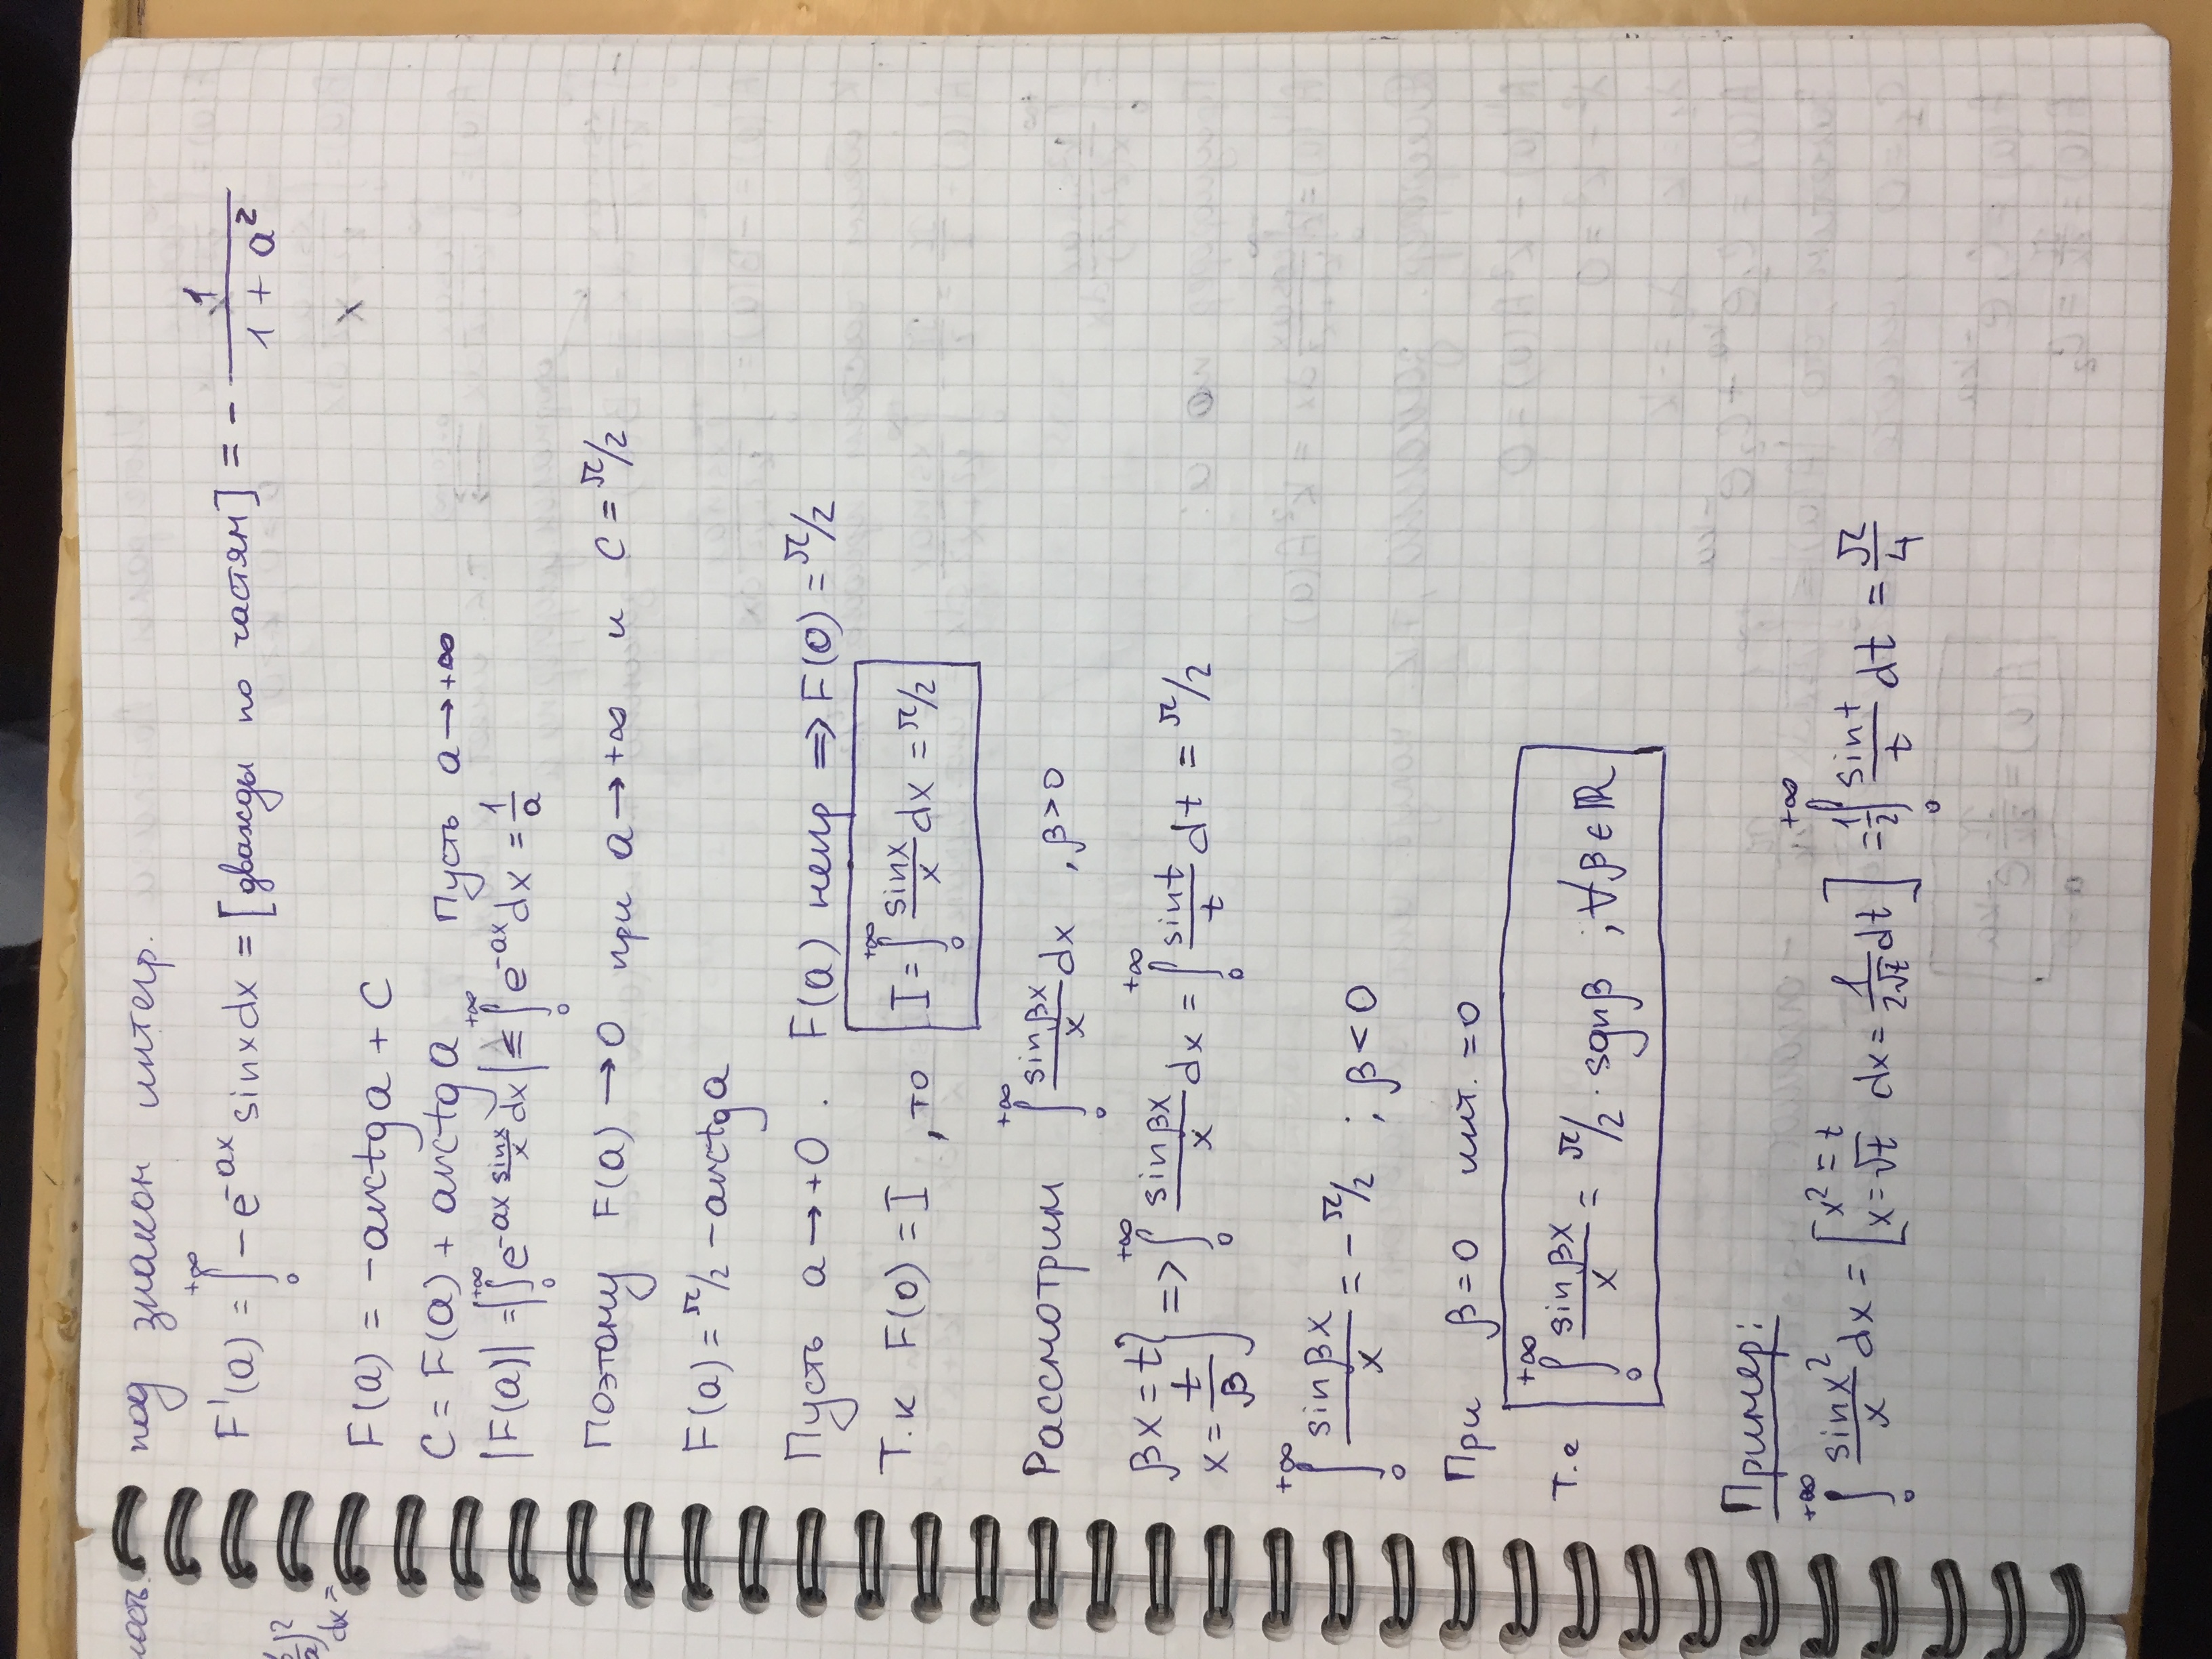 под знаком интегр.
F'(a) = ∫₀^{+∞} -e^{-ax} sinx dx = [дважды по частям] = - 1/(1 + a²)
x
F(a) = -arctg a + C
C = F(a) + arctg a Пусть a→+∞
|F(a)| = |∫₀^{+∞} e^{-ax} sinx/x dx| ≤ ∫₀^{+∞} e^{-ax} dx = 1/a
Поэтому F(a) → 0 при a → +∞ и C = π/2
F(a) = π/2 - arctg a
Пусть a → +0 . F(a) непр ⇒ F(0) = π/2
Т.к F(0) = I , то I = ∫₀^{+∞} sinx/x dx = π/2
Рассмотрим ∫₀^{+∞} sinβx/x dx , β>0
βx = t
x = t/β } ⇒ ∫₀^{+∞} sinβx/x dx = ∫₀^{+∞} sint/t dt = π/2
∫₀^{+∞} sinβx/x = -π/2 ; β<0
При β=0 инт. =0
т.е ∫₀^{+∞} sinβx/x = π/2 · sgnβ ; ∀β∈ℝ
Пример:
∫₀^{+∞} sinx²/x dx = [x² = t x=√t dx = 1/(2√t) dt] = 1/2 ∫₀^{+∞} sint/t dt = π/4